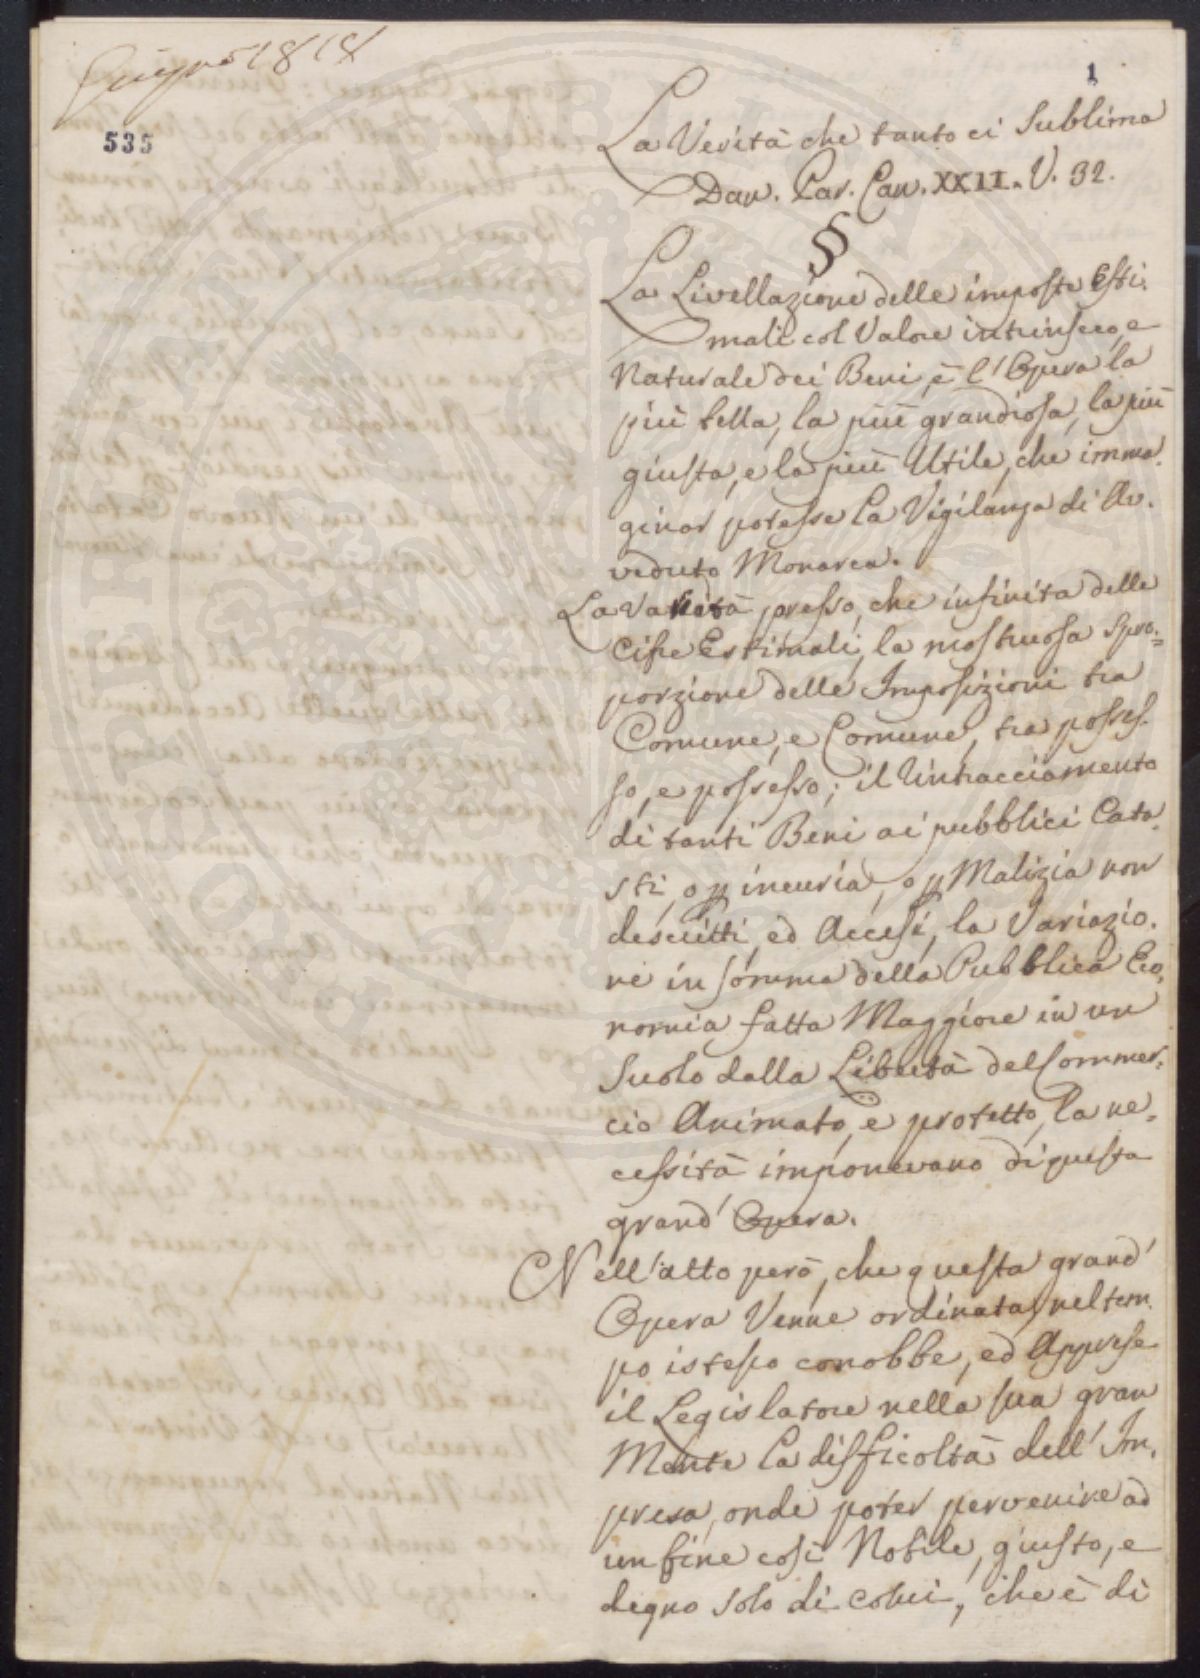 Giugno 1818
1
535
La Verità che tanto ci Sublima
Dan. Par. Can. XXII. V. 32.
§
La Livellazione delle imposte Esti.
mali col Valore intrinseco, e
Naturale dei Beni, è l'Opera la
più bella, la più grandiosa, la più
giusta, e la più Utile, che imma.
ginar potesse la Vigilanza di Av.
veduto Monarca.
La Varietà presso, che infinita delle
Cifre Estimali, la mostruosa spro.
porzione delle Imposizioni tra
Comune, e Comune, tra posses.
so, e possesso; il Rintracciamento
di tanti Beni ai pubblici Cata.
sti, o p incuria, o p Malizia non
descritti, ed Accesi, la Variazio.
ne in somma della Pubblica Eco.
nomia fatta Maggiore in un
Suolo dalla Libertà del Commer.
cio Animato, e protetto, la ne.
cessità imponevano di questa
grand' Opera.
Nell'atto però, che questa grand'
Opera Venne ordinata, nel tem.
po istesso conobbe, ed Apprese
il Legislatore nella sua gran
Mente la difficoltà dell' Im.
presa, onde poter pervenire ad
un fine così Nobile, giusto, e
degno solo di colui, che è di